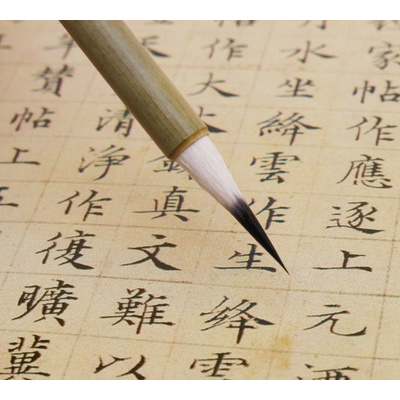 家帖作應逐上元
水坐絳雲作生絳雲
作大真文難以
天清淨作復曠冀
贊帖上